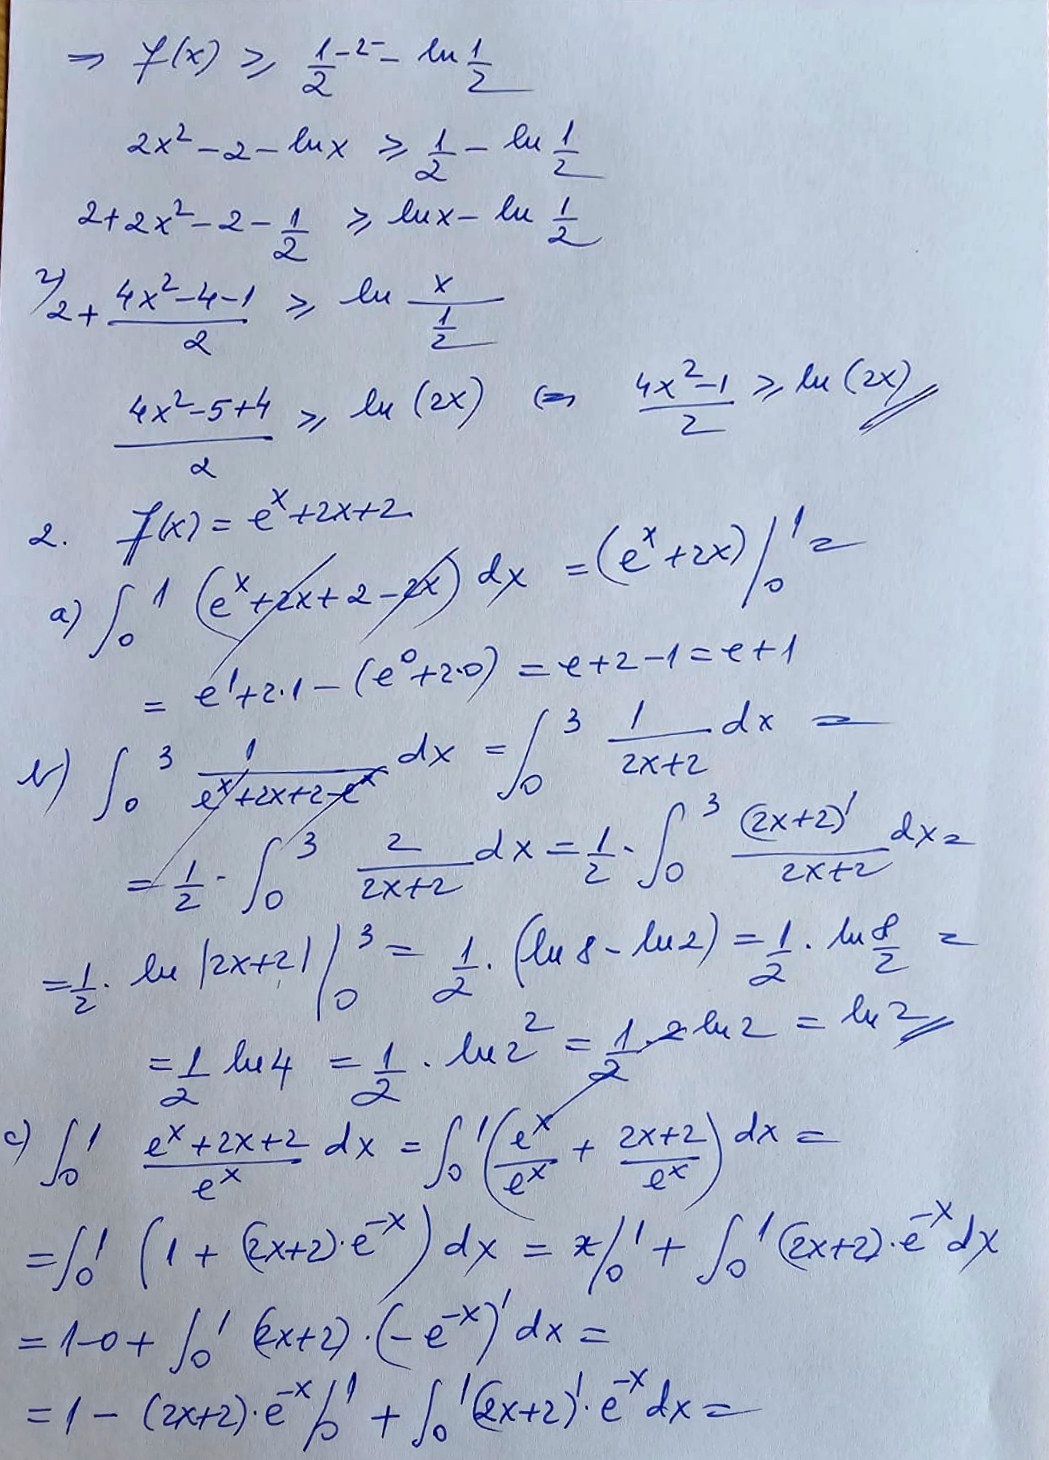 ⇒ f(x) ≥ 1/2 - 2 - ln 1/2
2x² - 2 - ln x ≥ 1/2 - ln 1/2
2 + 2x² - 2 - 1/2 ≥ ln x - ln 1/2
²⁾/2 + (4x² - 4 - 1)/2 ≥ ln x/(1/2)
(4x² - 5 + 4)/2 ≥ ln (2x) ⇔ (4x² - 1)/2 ≥ ln (2x)
2. f(x) = e^x + 2x + 2
a) ∫₀¹ (e^x + 2x + 2 - 2x) dx = (e^x + 2x) |₀¹ =
= e¹ + 2·1 - (e⁰ + 2·0) = e + 2 - 1 = e + 1
b) ∫₀³ 1/(e^x + 2x + 2 - e^x) dx = ∫₀³ 1/(2x+2) dx =
= 1/2 · ∫₀³ 2/(2x+2) dx = 1/2 · ∫₀³ (2x+2)'/(2x+2) dx =
= 1/2 · ln |2x+2| |₀³ = 1/2 · (ln 8 - ln 2) = 1/2 · ln 8/2 =
= 1/2 ln 4 = 1/2 · ln 2² = 1/2 · 2 ln 2 = ln 2
c) ∫₀¹ (e^x + 2x + 2)/e^x dx = ∫₀¹ (e^x/e^x + (2x+2)/e^x) dx =
= ∫₀¹ (1 + (2x+2)·e^-x) dx = x |₀¹ + ∫₀¹ (2x+2)·e^-x dx
= 1-0 + ∫₀¹ (2x+2)·(-e^-x)' dx =
= 1 - (2x+2)·e^-x |₀¹ + ∫₀¹ (2x+2)'·e^-x dx =